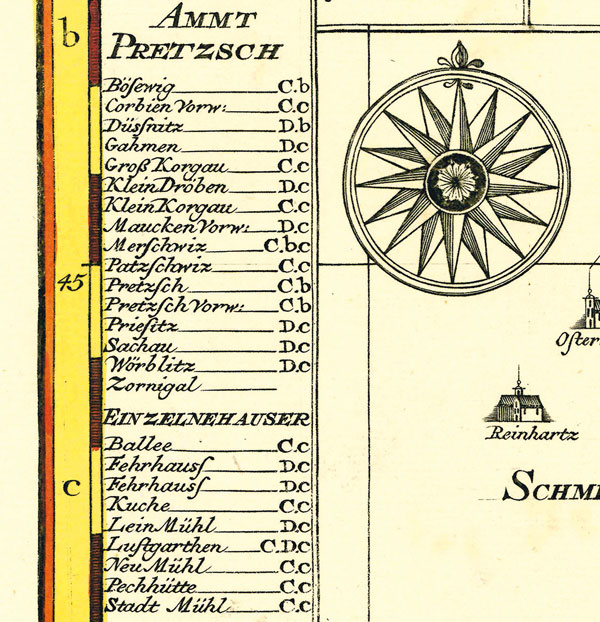 b
AMMT
PRETZSCH
Böſewig C.b
Corbien Vorw: C.c
Düſſnitz D.b
Gahmen D.c
Groß Korgau C.c
Klein Dröben D.c
Klein Korgau C.c
Maucken Vorw: D.c
Merſchwiz C.b.c
Patzſchwiz C.c
45
Pretzſch C.b
Pretzſch Vorw: C.b
Prieſitz D.c
Sachau D.c
Wörblitz D.c
Zornigal
EINZELNEHAUSER
Ballee C.c
Fehrhauſſ D.c
c
Fehrhauſſ D.c
Kuche C.c
Lein Mühl D.c
Luſtgarthen C.D.c
Neu Mühl C.c
Pechhütte C.c
Stadt Mühl C.c
Oſter
Reinhartz
SCHMI